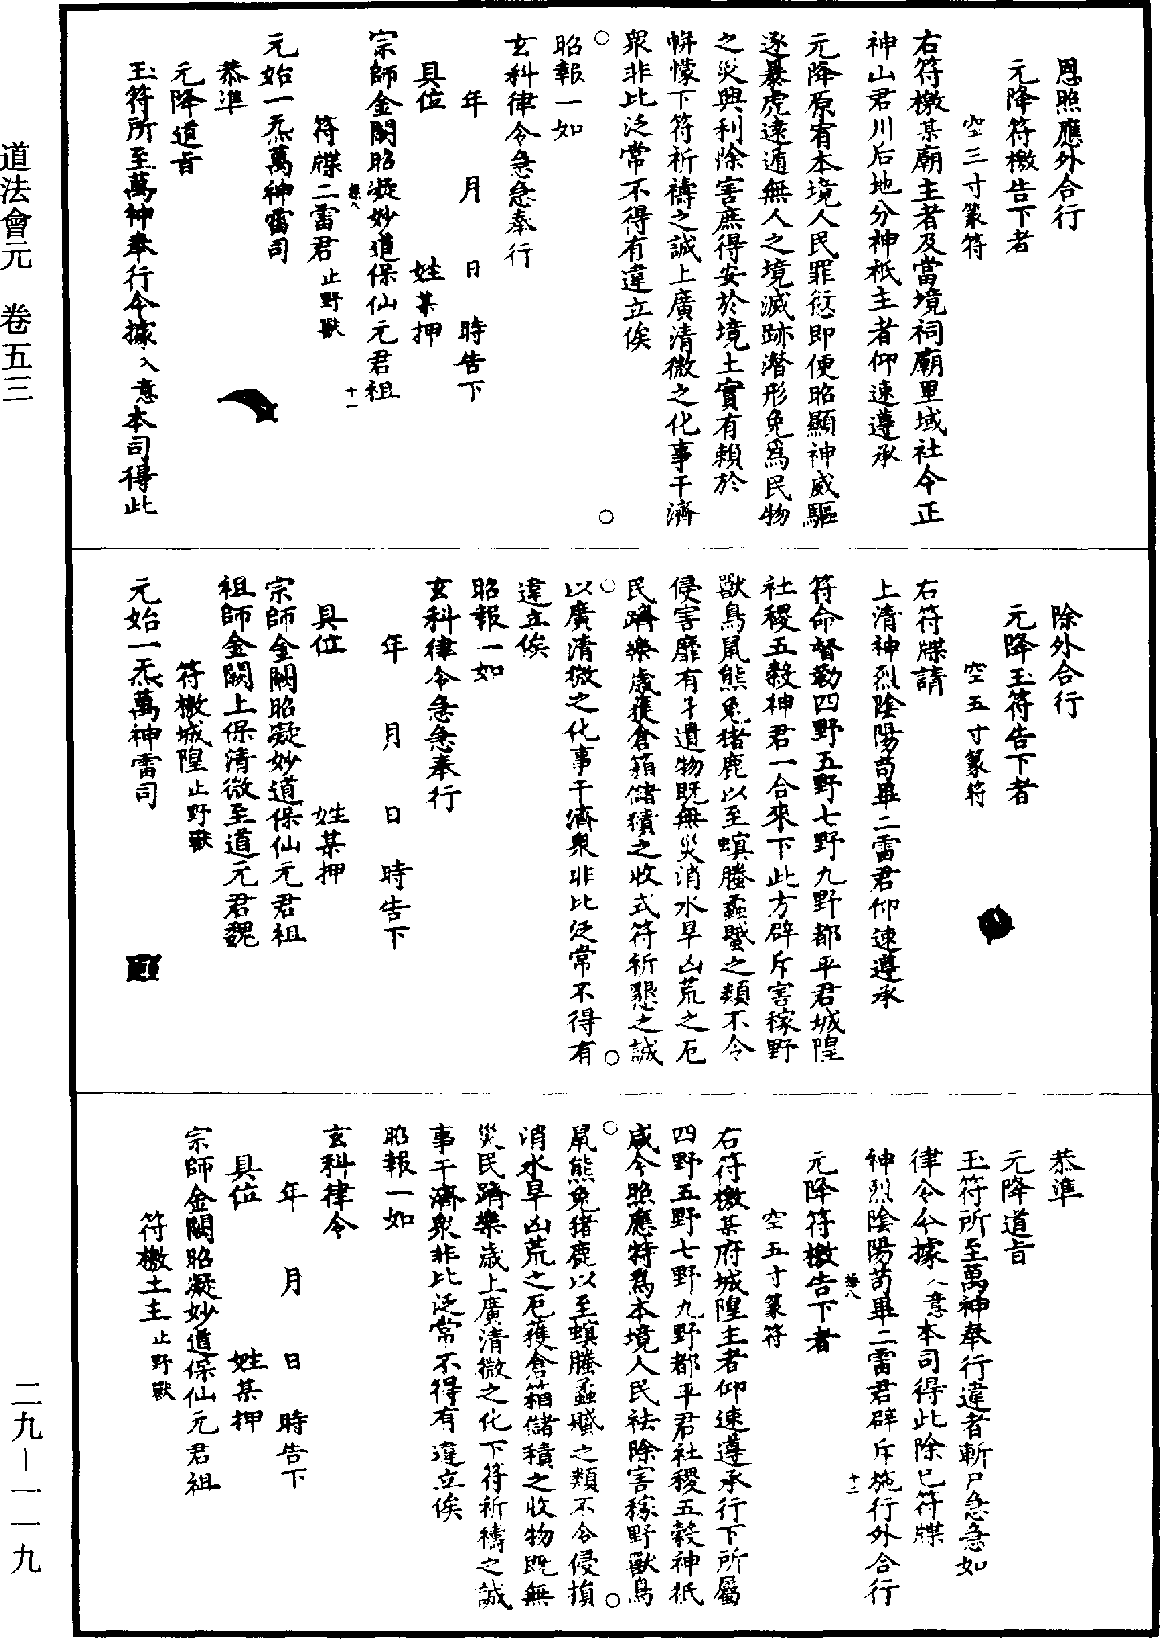 恩照應外合行
元降符檄告下者
空三寸篆符
右符檄某廟主者及當境祠廟里域社令正
神山君川后地分神祇主者仰速遵承
元降原宥本境人民罪愆即便昭顯神威驅
逐暴虎遠遁無人之境滅跡潛形免爲民物
之災興利除害庶得安於境土實有賴於
帡幪下符祈禱之誠上廣清微之化事干濟
衆非比泛常不得有違立俟
昭報一如
玄科律令急急奉行
年 月 日 時告下
具位 姓某押
宗師金闕昭凝妙道保仙元君祖
十一
符牒二雷君止野獸
元始一炁萬神雷司
恭準
元降道旨
玉符所至萬神奉行今據入意本司得此
除外合行
元降玉符告下者
空五寸篆符
右符牒請
上清神烈陰陽苟畢二雷君仰速遵承
符命督勒四野五野七野九野都平君城隍
社稷五穀神君一合來下此方辟斥害稼野
獸鳥鼠熊兔猪鹿以至螟螣蟊蠈之類不令
侵害靡有孑遺物既無災消水旱凶荒之厄
民躋樂歲獲倉箱儲積之收式符祈懇之誠
以廣清微之化事干濟衆非比泛常不得有
違立俟
昭報一如
玄科律令急急奉行
年 月 日 時告下
具位 姓某押
宗師金闕昭凝妙道保仙元君祖
祖師金闕上保清微至道元君魏
符檄城隍止野獸
元始一炁萬神雷司
恭準
元降道旨
玉符所至萬神奉行違者斬尸急急如
律令今據入意本司得此除已符牒
神烈陰陽苟畢二雷君辟斥施行外合行
十二
元降符檄告下者
空五寸篆符
右符檄某府城隍主者仰速遵承行下所屬
四野五野七野九野都平君社稷五穀神祇
咸令照應特爲本境人民祛除害稼野獸鳥
鼠熊兔猪鹿以至螟螣蟊蠈之類不令侵損
消水旱凶荒之厄獲倉箱儲積之收物既無
災民躋樂歲上廣清微之化下符祈禱之誠
事干濟衆非比泛常不得有違立俟
昭報一如
玄科律令
年 月 日 時告下
具位 姓某押
宗師金闕昭凝妙道保仙元君祖
符檄土主止野獸
道法會元 卷五三
二九—一一九